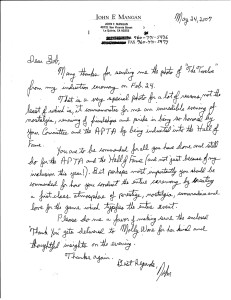 JOHN E MANGAN
May 24, 2009
JOHN E. MANGAN
La Quinta, CA 92253
FAX
Dear Bob,
Many thanks for sending me the photo of "The Twelve"
from my induction evening on Feb. 29.
That is a very special photo for a lot of reasons, not the
least of which is, it summarizes for me an incredible evening of
nostalgia, renewing of friendships and pride in being so honored by
your Committee and the APTA by being inducted into the Hall of
Fame.
You are to be commended for all you have done and still
do for the APTA and the Hall of Fame (and not just because of my
inclusion this year!). But perhaps most importantly you should be
commended for how you conduct the entire ceremony by creating
a first-class atmosphere of prestige, nostalgia, camaraderie and
love for the game which typifies the entire event.
Please do me a favor of making sure the enclosed
"Thank You" gets delivered to Molly Ware for her kind and
thoughtful insights on the evening.
Thanks again
Best Regards,
John